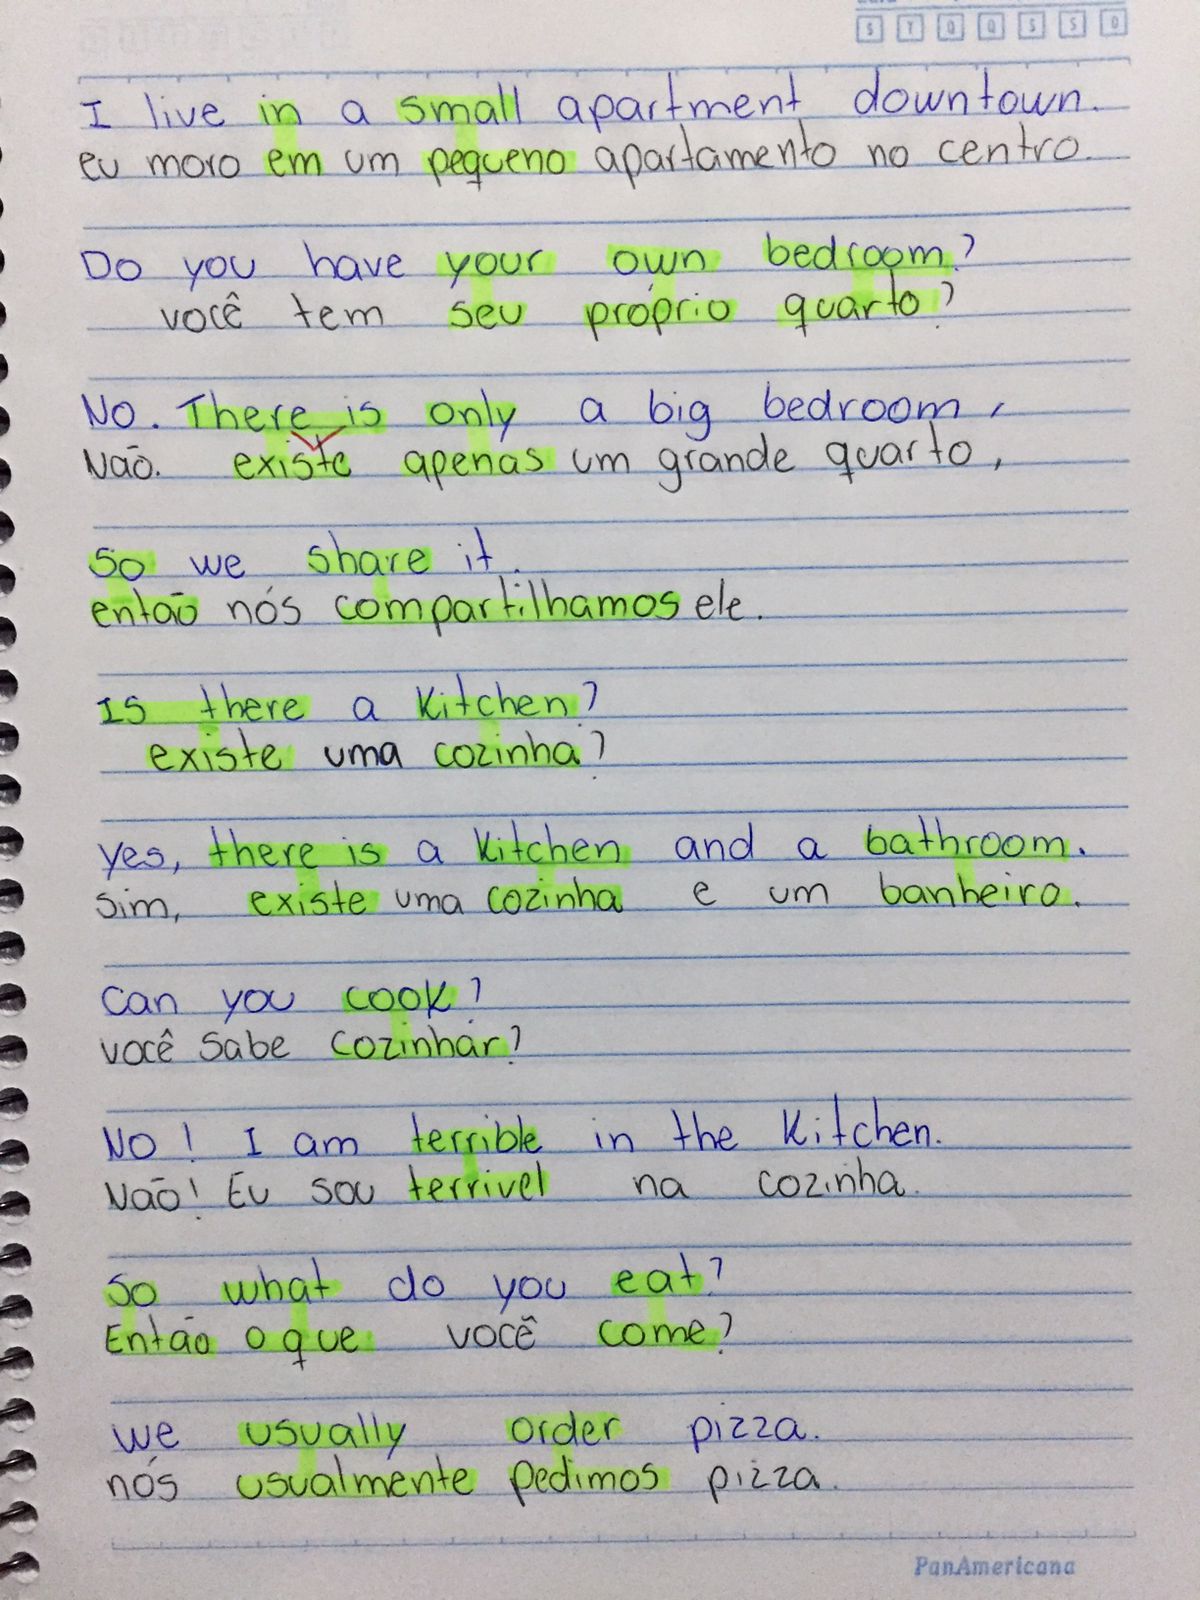 S T Q Q S S D
I live in a small apartment downtown.
eu moro em um pequeno apartamento no centro.
Do you have your own bedroom?
você tem seu próprio quarto?
No. There is only a big bedroom,
Não. existe apenas um grande quarto,
So we share it.
então nós compartilhamos ele.
Is there a kitchen?
existe uma cozinha?
yes, there is a kitchen and a bathroom.
sim, existe uma cozinha e um banheiro.
can you cook?
você sabe cozinhar?
No! I am terrible in the kitchen.
Não! Eu sou terrivel na cozinha.
So what do you eat?
Então o que você come?
we usually order pizza.
nós usualmente pedimos pizza.
PanAmericana